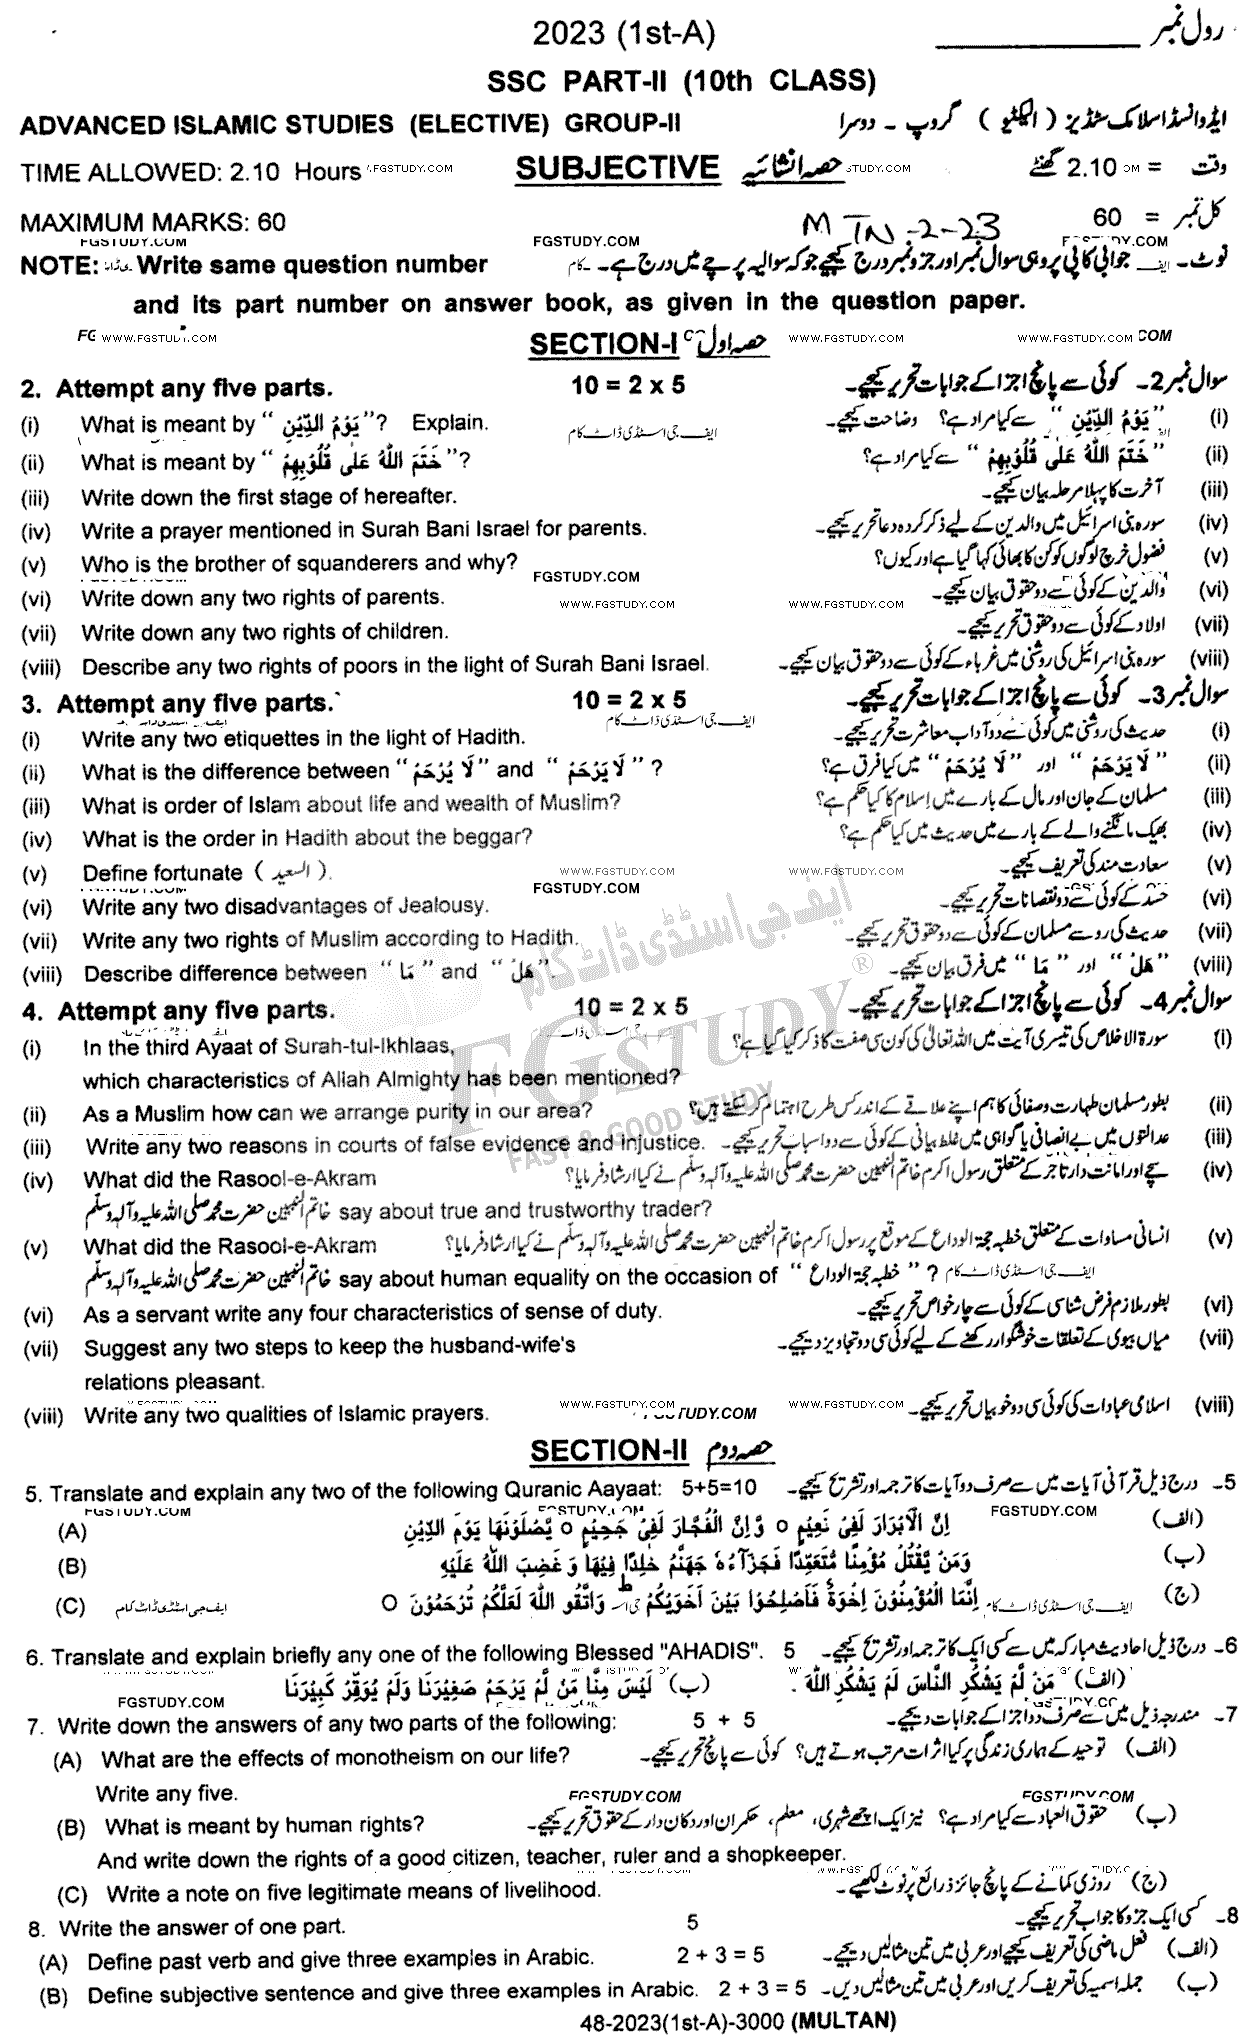 2023 (1st-A) رول نمبر
SSC PART-II (10th CLASS)
ADVANCED ISLAMIC STUDIES (ELECTIVE) GROUP-II ایڈوانسڈ اسلامک سٹڈیز ( الیکٹو ) گروپ ۔ دوسرا
TIME ALLOWED: 2.10 Hours SUBJECTIVE حصہ انشائیہ وقت = 2.10 گھنٹے
MAXIMUM MARKS: 60 MTN-2-23 کل نمبر = 60
NOTE: Write same question number نوٹ۔ جوابی کاپی پر وہی سوال نمبر اور جزو نمبر درج کیجیے جو کہ سوالیہ پرچے میں درج ہے۔
and its part number on answer book, as given in the question paper.
SECTION-I حصہ اول
2. Attempt any five parts. 10 = 2 x 5 سوال نمبر 2۔ کوئی سے پانچ اجزا کے جوابات تحریر کیجیے۔
(i) What is meant by “ يَوْمُ الدِّيْنِ ”? Explain. (i) ”يَوْمُ الدِّيْنِ“ سے کیا مراد ہے؟ وضاحت کیجیے۔
(ii) What is meant by “ خَتَمَ اللّٰهُ عَلٰى قُلُوْبِهِمْ ”? (ii) ”خَتَمَ اللّٰهُ عَلٰى قُلُوْبِهِمْ“ سے کیا مراد ہے؟
(iii) Write down the first stage of hereafter. (iii) آخرت کا پہلا مرحلہ بیان کیجیے۔
(iv) Write a prayer mentioned in Surah Bani Israel for parents. (iv) سورہ بنی اسرائیل میں والدین کے لیے ذکر کردہ دعا تحریر کیجیے۔
(v) Who is the brother of squanderers and why? (v) فضول خرچ لوگوں کو کن کا بھائی کہا گیا ہے اور کیوں؟
(vi) Write down any two rights of parents. (vi) والدین کے کوئی سے دو حقوق بیان کیجیے۔
(vii) Write down any two rights of children. (vii) اولاد کے کوئی سے دو حقوق تحریر کیجیے۔
(viii) Describe any two rights of poors in the light of Surah Bani Israel. (viii) سورہ بنی اسرائیل کی روشنی میں غرباء کے کوئی سے دو حقوق بیان کیجیے۔
3. Attempt any five parts. 10 = 2 x 5 سوال نمبر 3۔ کوئی سے پانچ اجزا کے جوابات تحریر کیجیے۔
(i) Write any two etiquettes in the light of Hadith. (i) حدیث کی روشنی میں کوئی سے دو آداب معاشرت تحریر کیجیے۔
(ii) What is the difference between “ لَا يُرْحَمُ ” and “ لَا يَرْحَمُ ” ? (ii) ”لَا يَرْحَمُ“ اور ”لَا يُرْحَمُ“ میں کیا فرق ہے؟
(iii) What is order of Islam about life and wealth of Muslim? (iii) مسلمان کے جان اور مال کے بارے میں اسلام کا کیا حکم ہے؟
(iv) What is the order in Hadith about the beggar? (iv) بھیک مانگنے والے کے بارے میں حدیث میں کیا حکم ہے؟
(v) Define fortunate ( السعيد ). (v) سعادت مند کی تعریف کیجیے۔
(vi) Write any two disadvantages of Jealousy. (vi) حسد کے کوئی سے دو نقصانات تحریر کیجیے۔
(vii) Write any two rights of Muslim according to Hadith. (vii) حدیث کی رو سے مسلمان کے کوئی سے دو حقوق تحریر کیجیے۔
(viii) Describe difference between “ مَا ” and “ هَلْ ”. (viii) ”هَلْ“ اور ”مَا“ میں فرق بیان کیجیے۔
4. Attempt any five parts. 10 = 2 x 5 سوال نمبر 4۔ کوئی سے پانچ اجزا کے جوابات تحریر کیجیے۔
(i) In the third Ayaat of Surah-tul-Ikhlaas, (i) سورۃ الاخلاص کی تیسری آیت میں اللہ تعالیٰ کی کون سی صفت کا ذکر کیا گیا ہے؟
which characteristics of Allah Almighty has been mentioned?
(ii) As a Muslim how can we arrange purity in our area? (ii) بطور مسلمان طہارت و صفائی کا ہم اپنے علاقے کے اندر کس طرح اہتمام کر سکتے ہیں؟
(iii) Write any two reasons in courts of false evidence and injustice. (iii) عدالتوں میں بے انصافی یا گواہی میں غلط بیانی کے کوئی سے دو اسباب تحریر کیجیے۔
(iv) What did the Rasool-e-Akram (iv) سچے اور امانت دار تاجر کے متعلق رسول اکرم خاتم النبیین حضرت محمد صلی اللہ علیہ وآلہ وسلم نے کیا ارشاد فرمایا؟
خاتم النبیین حضرت محمد صلی اللہ علیہ وآلہ وسلم say about true and trustworthy trader?
(v) What did the Rasool-e-Akram (v) انسانی مساوات کے متعلق خطبہ حجۃ الوداع کے موقع پر رسول اکرم خاتم النبیین حضرت محمد صلی اللہ علیہ وآلہ وسلم نے کیا ارشاد فرمایا؟
خاتم النبیین حضرت محمد صلی اللہ علیہ وآلہ وسلم say about human equality on the occasion of “ خطبہ حجۃ الوداع ” ?
(vi) As a servant write any four characteristics of sense of duty. (vi) بطور ملازم فرض شناسی کے کوئی سے چار خواص تحریر کیجیے۔
(vii) Suggest any two steps to keep the husband-wife's (vii) میاں بیوی کے تعلقات خوشگوار رکھنے کے لیے کوئی سی دو تجاویز دیجیے۔
relations pleasant.
(viii) Write any two qualities of Islamic prayers. (viii) اسلامی عبادات کی کوئی سی دو خوبیاں تحریر کیجیے۔
SECTION-II حصہ دوم
5. Translate and explain any two of the following Quranic Aayaat: 5+5=10 5۔ درج ذیل قرآنی آیات میں سے صرف دو آیات کا ترجمہ اور تشریح کیجیے۔
(A) اِنَّ الْاَبْرَارَ لَفِىْ نَعِيْمٍ o وَّاِنَّ الْفُجَّارَ لَفِىْ جَحِيْمٍ o يَّصْلَوْنَهَا يَوْمَ الدِّيْنِ (الف)
(B) وَمَنْ يَّقْتُلْ مُؤْمِنًا مُّتَعَمِّدًا فَجَزَآؤُهٗ جَهَنَّمُ خٰلِدًا فِيْهَا وَغَضِبَ اللّٰهُ عَلَيْهِ (ب)
(C) اِنَّمَا الْمُؤْمِنُوْنَ اِخْوَةٌ فَاَصْلِحُوْا بَيْنَ اَخَوَيْكُمْ ط وَاتَّقُو اللّٰهَ لَعَلَّكُمْ تُرْحَمُوْنَ o (ج)
6. Translate and explain briefly any one of the following Blessed "AHADIS". 5 6۔ درج ذیل احادیث مبارکہ میں سے کسی ایک کا ترجمہ اور تشریح کیجیے۔
(الف) مَنْ لَّمْ يَشْكُرِ النَّاسَ لَمْ يَشْكُرِ اللّٰهَ . (ب) لَيْسَ مِنَّا مَنْ لَّمْ يَرْحَمْ صَغِيْرَنَا وَلَمْ يُوَقِّرْ كَبِيْرَنَا
7. Write down the answers of any two parts of the following: 5 + 5 7۔ مندرجہ ذیل میں سے صرف دو اجزا کے جوابات دیجیے۔
(A) What are the effects of monotheism on our life? (الف) توحید کے ہماری زندگی پر کیا اثرات مرتب ہوتے ہیں؟ کوئی سے پانچ تحریر کیجیے۔
Write any five.
(B) What is meant by human rights? (ب) حقوق العباد سے کیا مراد ہے؟ نیز ایک اچھے شہری، معلم، حکمران اور دکان دار کے حقوق تحریر کیجیے۔
And write down the rights of a good citizen, teacher, ruler and a shopkeeper.
(C) Write a note on five legitimate means of livelihood. (ج) روزی کمانے کے پانچ جائز ذرائع پر نوٹ لکھیے۔
8. Write the answer of one part. 5 8۔ کسی ایک جزو کا جواب تحریر کیجیے۔
(A) Define past verb and give three examples in Arabic. 2 + 3 = 5 (الف) فعل ماضی کی تعریف کیجیے اور عربی میں تین مثالیں دیجیے۔
(B) Define subjective sentence and give three examples in Arabic. 2 + 3 = 5 (ب) جملہ اسمیہ کی تعریف کریں اور عربی میں تین مثالیں دیں۔
48-2023(1st-A)-3000 (MULTAN)